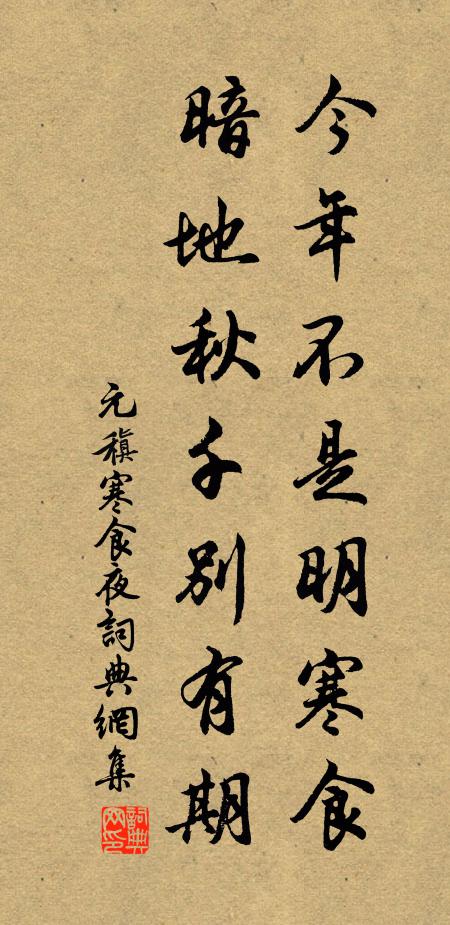 今年不是明寒食
暗地秋千別有期
元稹寒食夜詞典網集
詞典網印